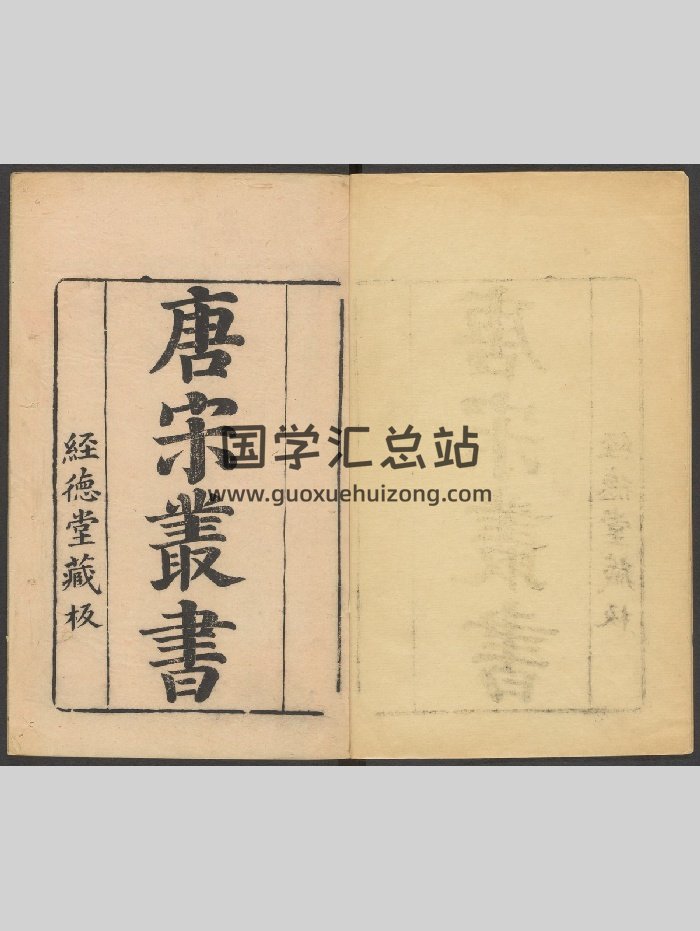 唐宋叢書
経徳堂藏板
国学汇总站
www.guoxuehuizong.com